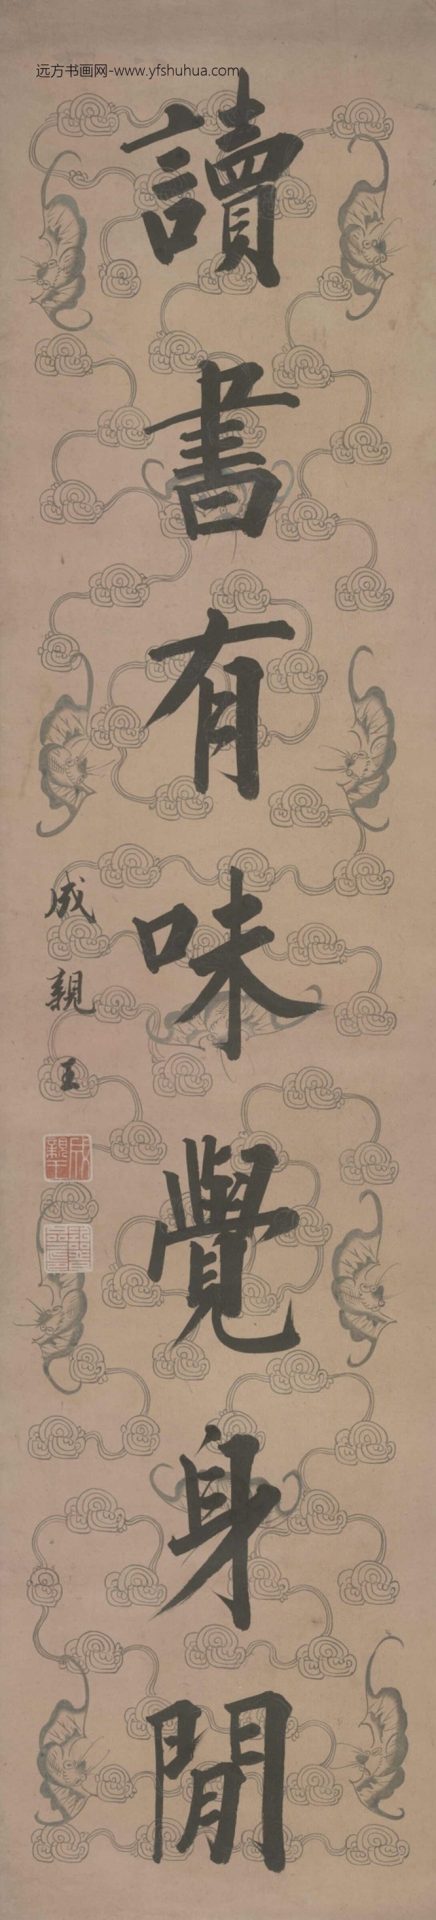 远方书画网-www.yfshuhua.com
讀書有味覺身閒
成親王
成親王